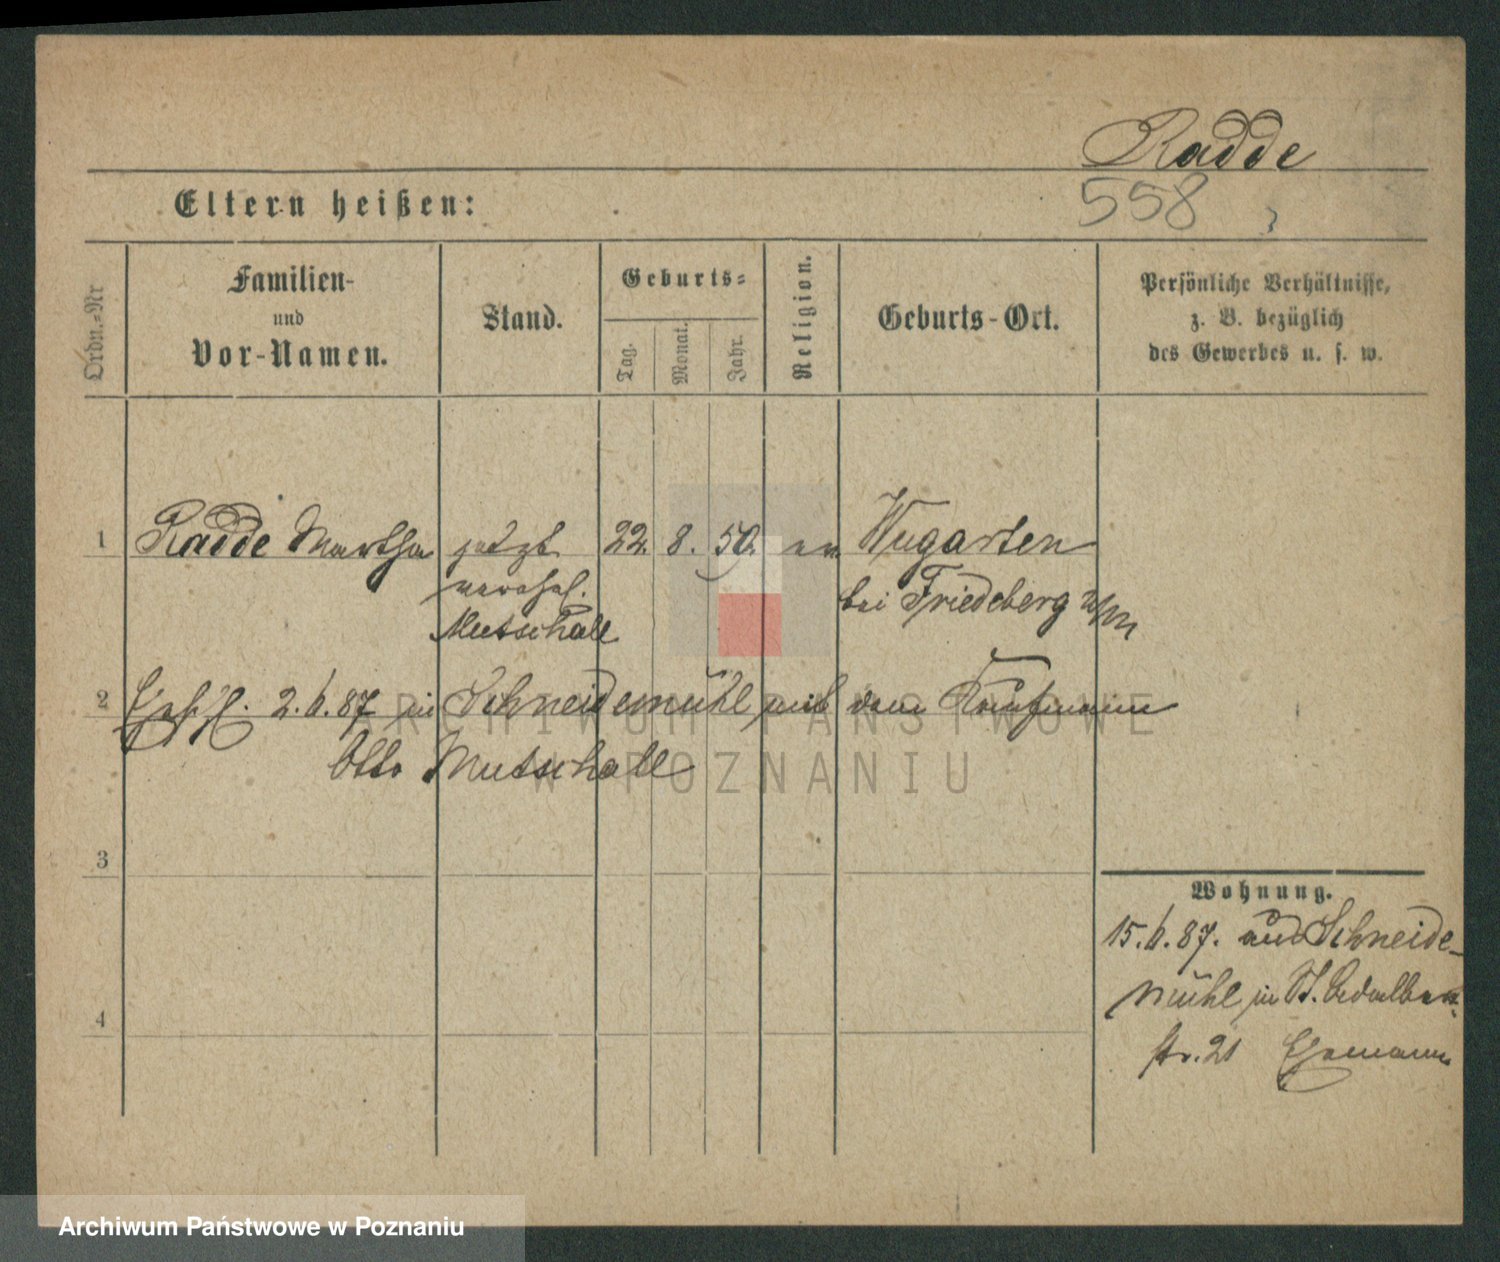 Radde
558
Eltern heißen:
Ordn.-Nr
Familien-
und
Vor-Namen.
Stand.
Geburts-
Tag.
Monat.
Jahr.
Religion.
Geburts-Ort.
Persönliche Verhältnisse,
z. B. bezüglich
des Gewerbes u. s. w.
1 Radde Martha jetzt 22. 8. 50. ev. Wugarten
verehel. bei Friedeberg N/M
Mutschall
2 2.6.87 in Schneidemühl mit dem Kaufmann
Otto Mutschall
3
Wohnung.
15.6.87. aus Schneide-
mühl in St. Adalbert-
4
str. 21 Ehemann
ARCHIWUM PAŃSTWOWE
W POZNANIU
Archiwum Państwowe w Poznaniu